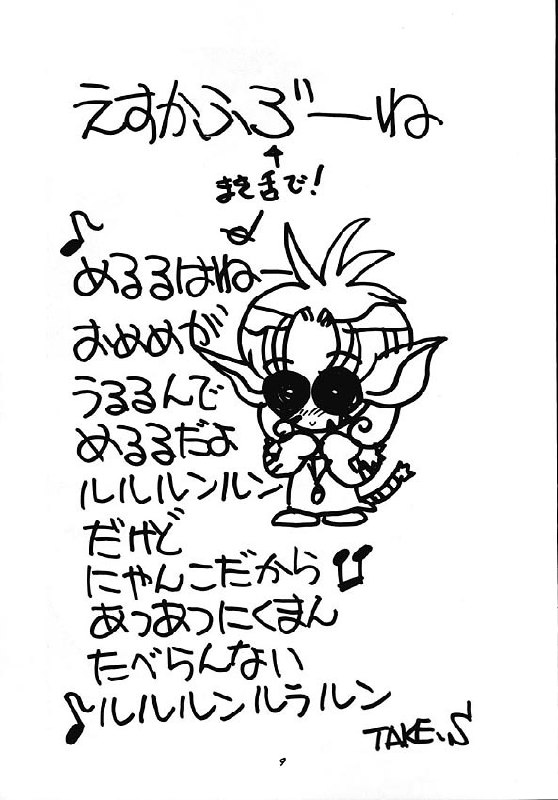 えすかふろ゛ーね
まき舌で!
めるるはねー
おめめが
うるるんで
めるるだよ
ルルルンルン
だけど
にゃんこだから
あつあつにくまん
たべらんない
ルルルンルラルン
TAKE.S
9